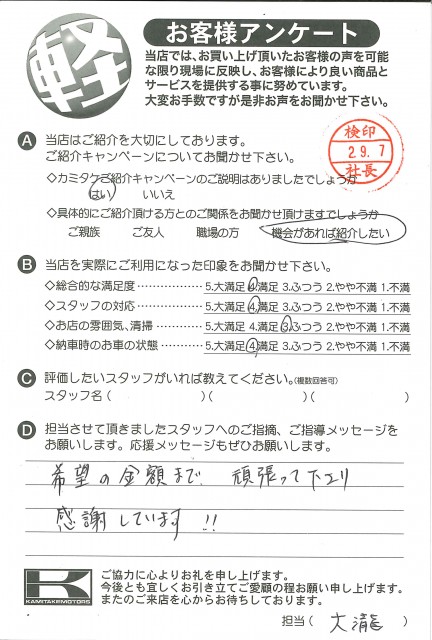 軽
お客様アンケート
当店では、お買い上げ頂いたお客様の声を可能
な限り現場に反映し、お客様により良い商品と
サービスを提供する事に努めています。
大変お手数ですが是非お声をお聞かせ下さい。
A 当店はご紹介を大切にしております。
ご紹介キャンペーンについてお聞かせ下さい。
検印
29.7
社長
◇カミタケご紹介キャンペーンのご説明はありましたでしょうか
はい いいえ
◇具体的にご紹介頂ける方とのご関係をお聞かせ頂けますでしょうか
ご親族 ご友人 職場の方 機会があれば紹介したい
B 当店を実際にご利用になった印象をお聞かせ下さい。
◇総合的な満足度 5.大満足 4.満足 3.ふつう 2.やや不満 1.不満
◇スタッフの対応 5.大満足 4.満足 3.ふつう 2.やや不満 1.不満
◇お店の雰囲気、清掃 5.大満足 4.満足 3.ふつう 2.やや不満 1.不満
◇納車時のお車の状態 5.大満足 4.満足 3.ふつう 2.やや不満 1.不満
C 評価したいスタッフがいれば教えてください。(複数回答可)
スタッフ名 ( )( )( )
D 担当させて頂きましたスタッフへのご指摘、ご指導メッセージを
お願いします。応援メッセージもぜひお願いします。
希望の金額まで 頑張って下さり
感謝しています!!
K
KAMITAKEMOTORS
ご協力に心よりお礼を申し上げます。
今後とも宜しくお引き立てご愛顧の程お願い申し上げます。
またのご来店を心からお待ちしております。
担当 ( 大瀧 )